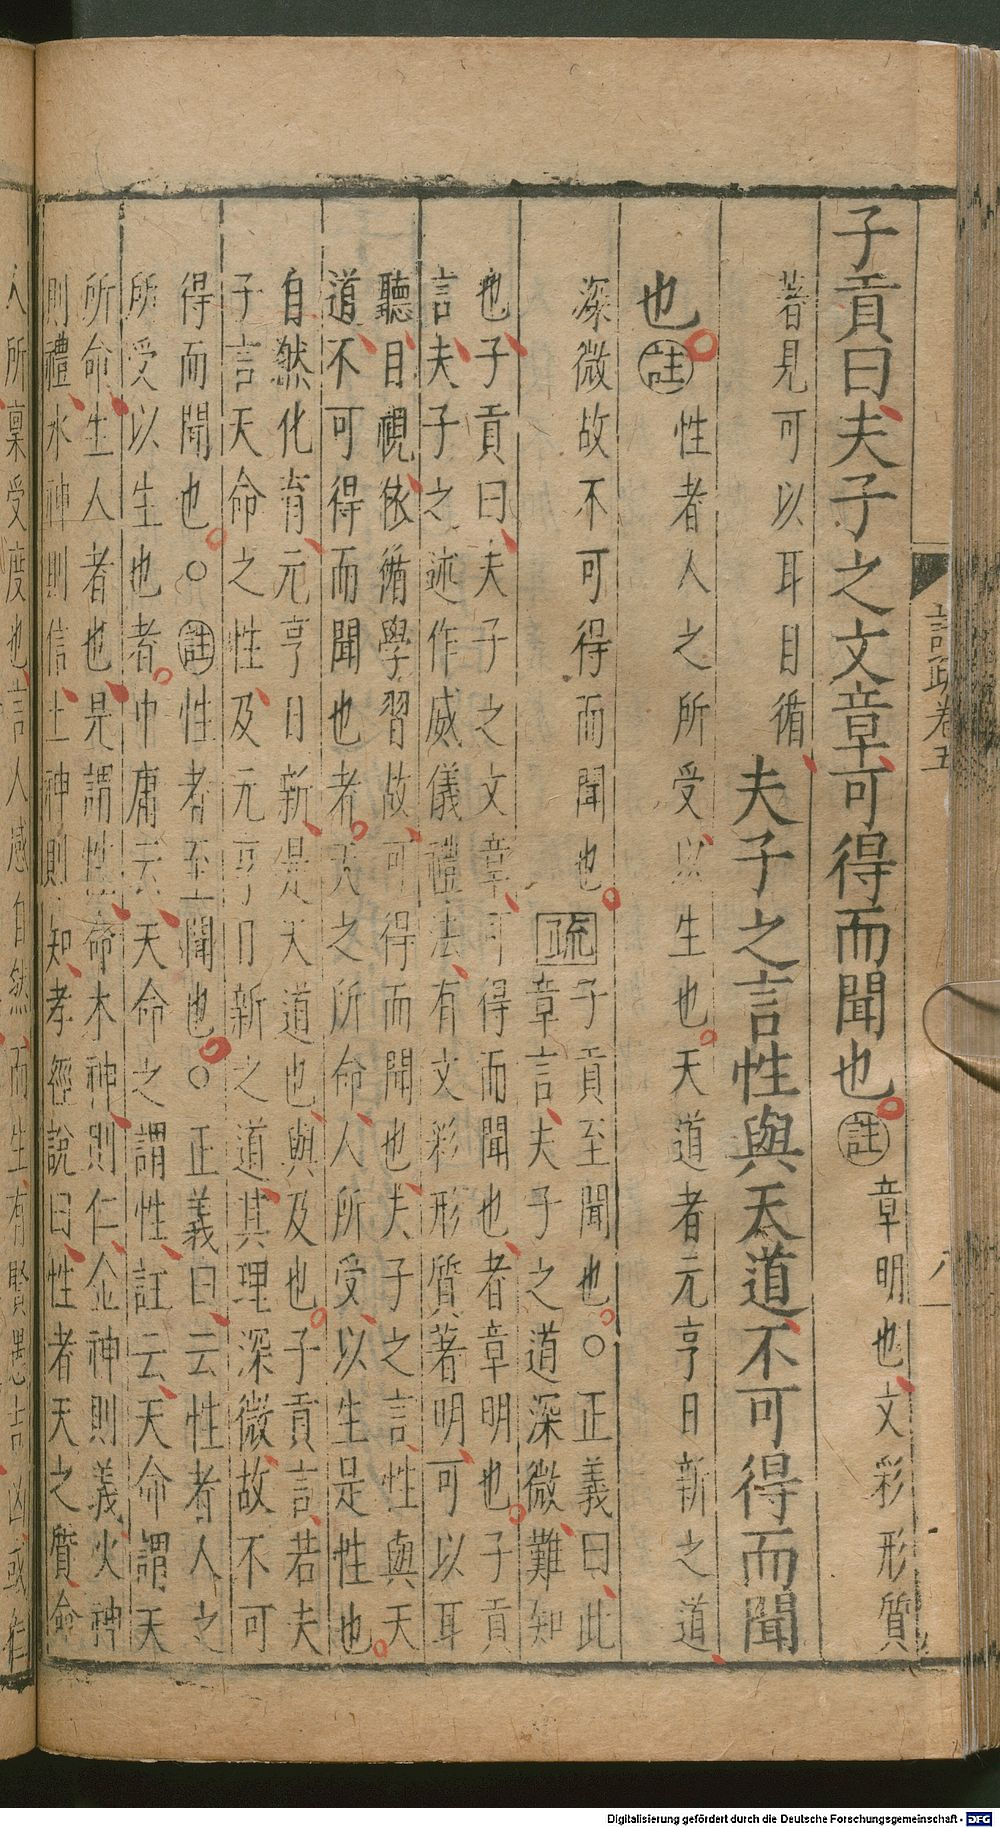 子貢曰夫子之文章可得而聞也註章明也文彩形質
著見可以耳目循
夫子之言性與天道不可得而聞
也註性者人之所受以生也天道者元亨日新之道
深微故不可得而聞也
疏子貢至聞也○正義曰此
章言夫子之道深微難知
也子貢曰夫子之文章可得而聞也者章明也子貢
言夫子之述作威儀禮法有文彩形質著明可以耳
聽目視依循學習故可得而聞也夫子之言性與天
道不可得而聞也者天之所命人所受以生是性也
自然化育元亨日新是天道也與及也子貢言若夫
子言天命之性及元亨日新之道其理深微故不可
得而聞也○註性者至聞也○正義曰云性者人之
所受以生也者中庸云天命之謂性註云天命謂天
所命生人者也是謂性命木神則仁金神則義火神
則禮水神則信土神則知孝經說曰性者天之質命
人所稟受度也言人感自然而生有賢愚吉凶或仁
註疏卷五
八
Digitalisierung gefördert durch die Deutsche Forschungsgemeinschaft - DFG